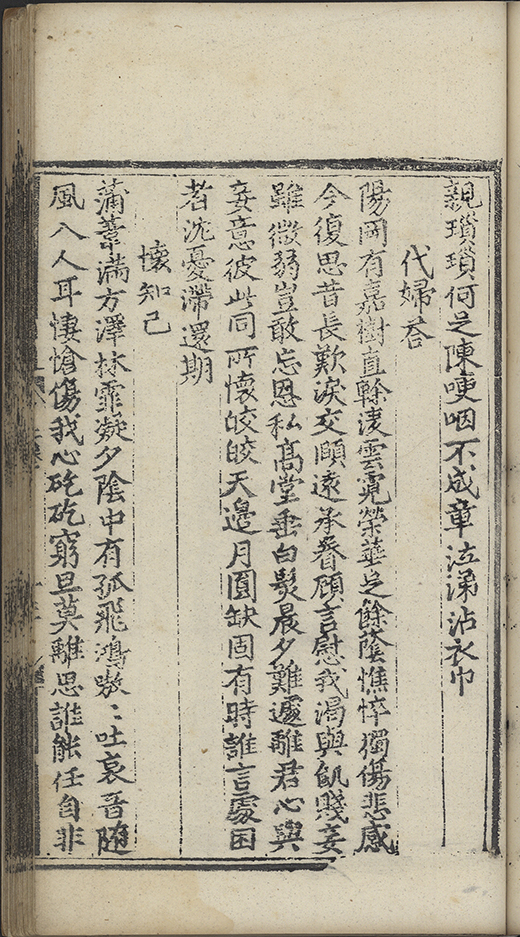 親瑣瑣何足陳哽咽不成章泣涕沾衣巾
代婦荅
陽岡有嘉樹直榦淩雲霓榮華足餘蔭憔悴獨傷悲感
今復思昔長歎淚交頤遠承眷顧言慰我渴與飢賤妾
雖微弱豈敢忘恩私高堂垂白髮晨夕難遽離君心與
妾意彼此同所懷皎皎天邊月圓缺固有時誰言處困
者沈憂滯還期
懷知己
蒲葦滿方澤林霏凝夕陰中有孤飛鴻嗷〻吐哀音随
風入人耳悽愴傷我心矻矻窮旦莫離思誰能任自非